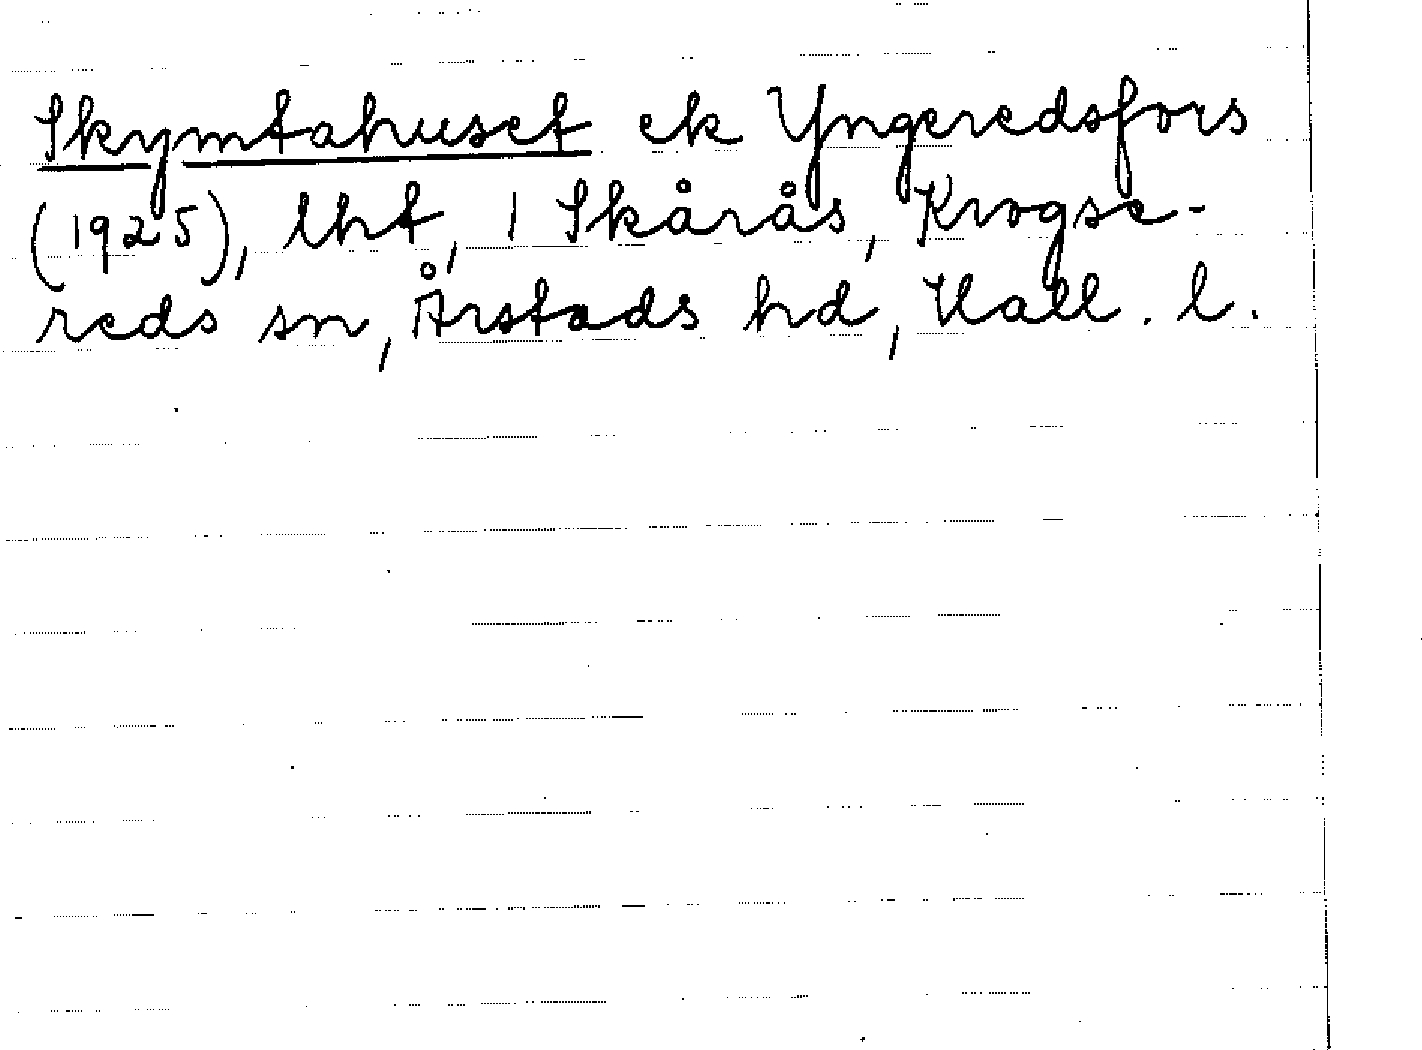 Skymtahuset ek Yngeredsfors
(1925), lht, 1 Skårås, Krogse-
reds sn, Årstads hd, Hall. l.